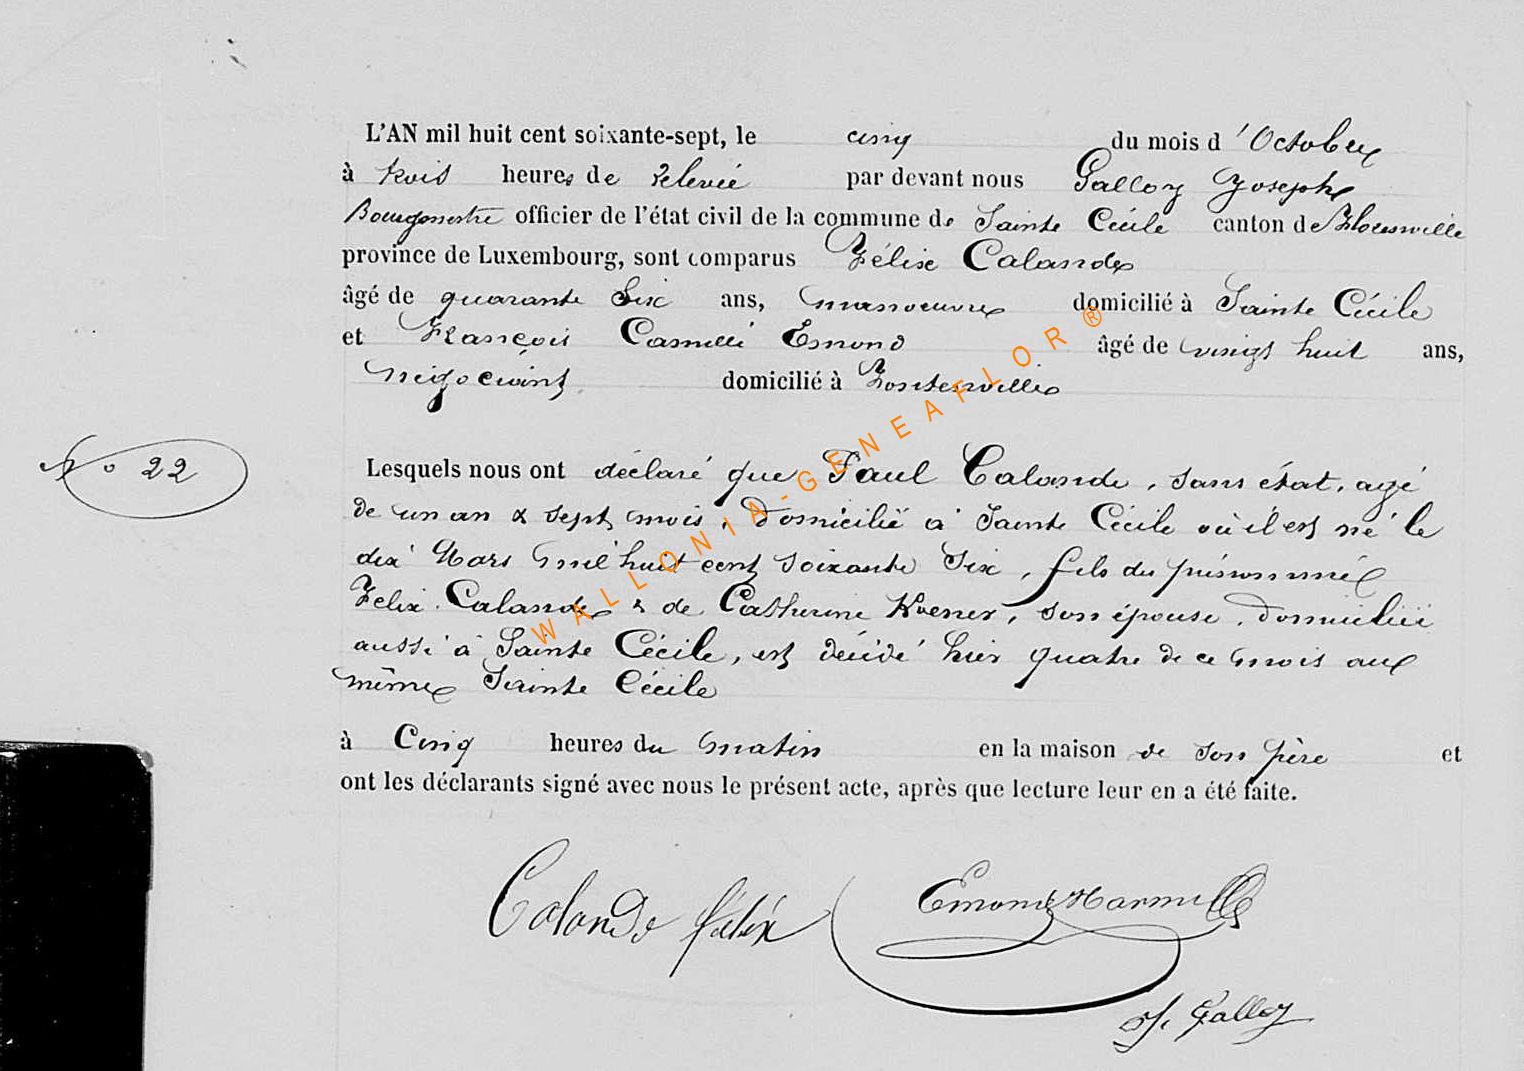 L'AN mil huit cent soixante-sept, le cinq du mois d'Octobre
à trois heures de relevée par devant nous Galloy Joseph
Bourgmestre officier de l'état civil de la commune de Sainte Cécile canton de Florenville
province de Luxembourg, sont comparus Félix Calande
âgé de quarante six ans, manoeuvre domicilié à Sainte Cécile
et François Camille Emond âgé de vingt huit ans,
négociant domicilié à Fontenoille
No 22
Lesquels nous ont déclaré que Paul Calande, sans état, agé
de un an & sept mois, domicilié à Sainte Cécile où il est né le
dix Mars mil huit cent soixante six, fils du prénommé
Félix Calande & de Catherine, son épouse, domiciliée
aussi à Sainte Cécile, est décédé hier quatre de ce mois au
même Sainte Cécile
à Cinq heures du matin en la maison de son père et
ont les déclarants signé avec nous le présent acte, après que lecture leur en a été faite.
Calande félix
Emond
J. Galloy
WALLONIA-GENEAFLOR®